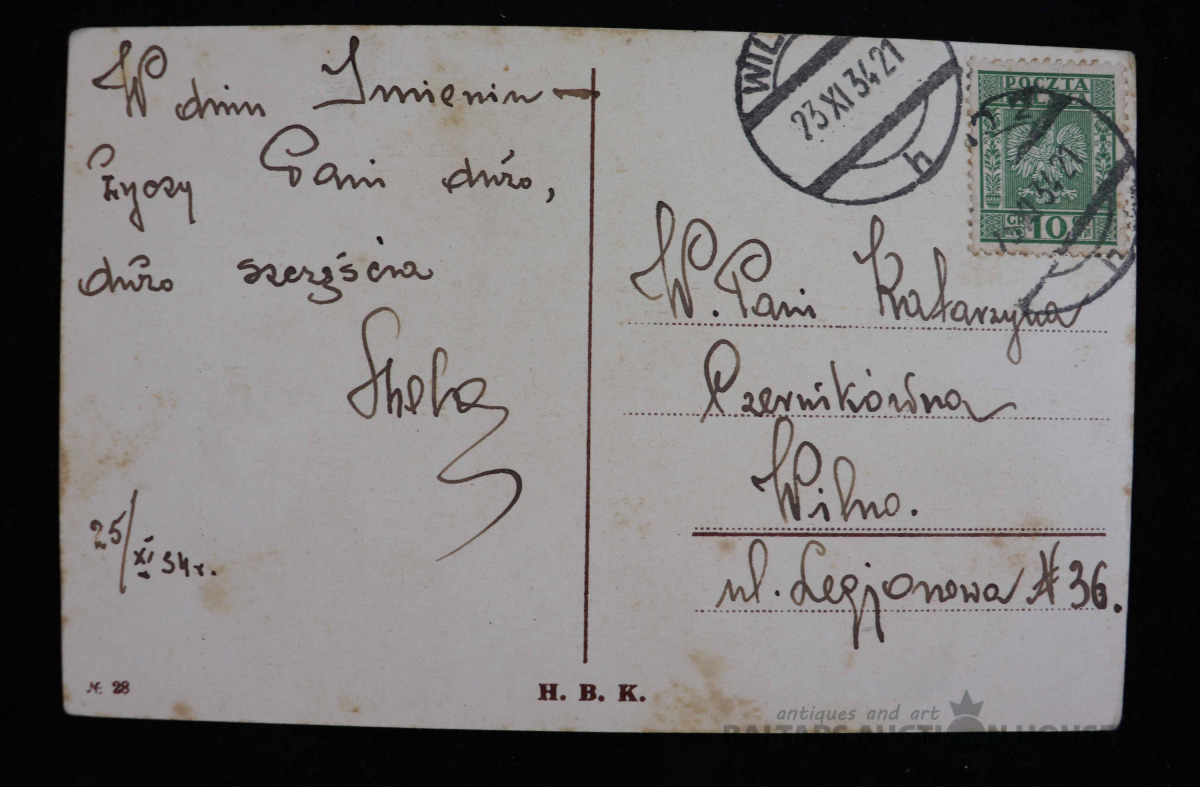 W dniu Imienin —
życzy Pani dużo,
dużo szczęścia
25/XI 34 r.
№ 28
H. B. K.
WIL
23 XI 34 21
h
POCZTA
POLSKA
GR 10
34 21
W. Pani Katarzyna
Czernikówna
Wilno.
ul. Legjonowa № 36.
antiques and art
BALTARS AUCTION HOUSE